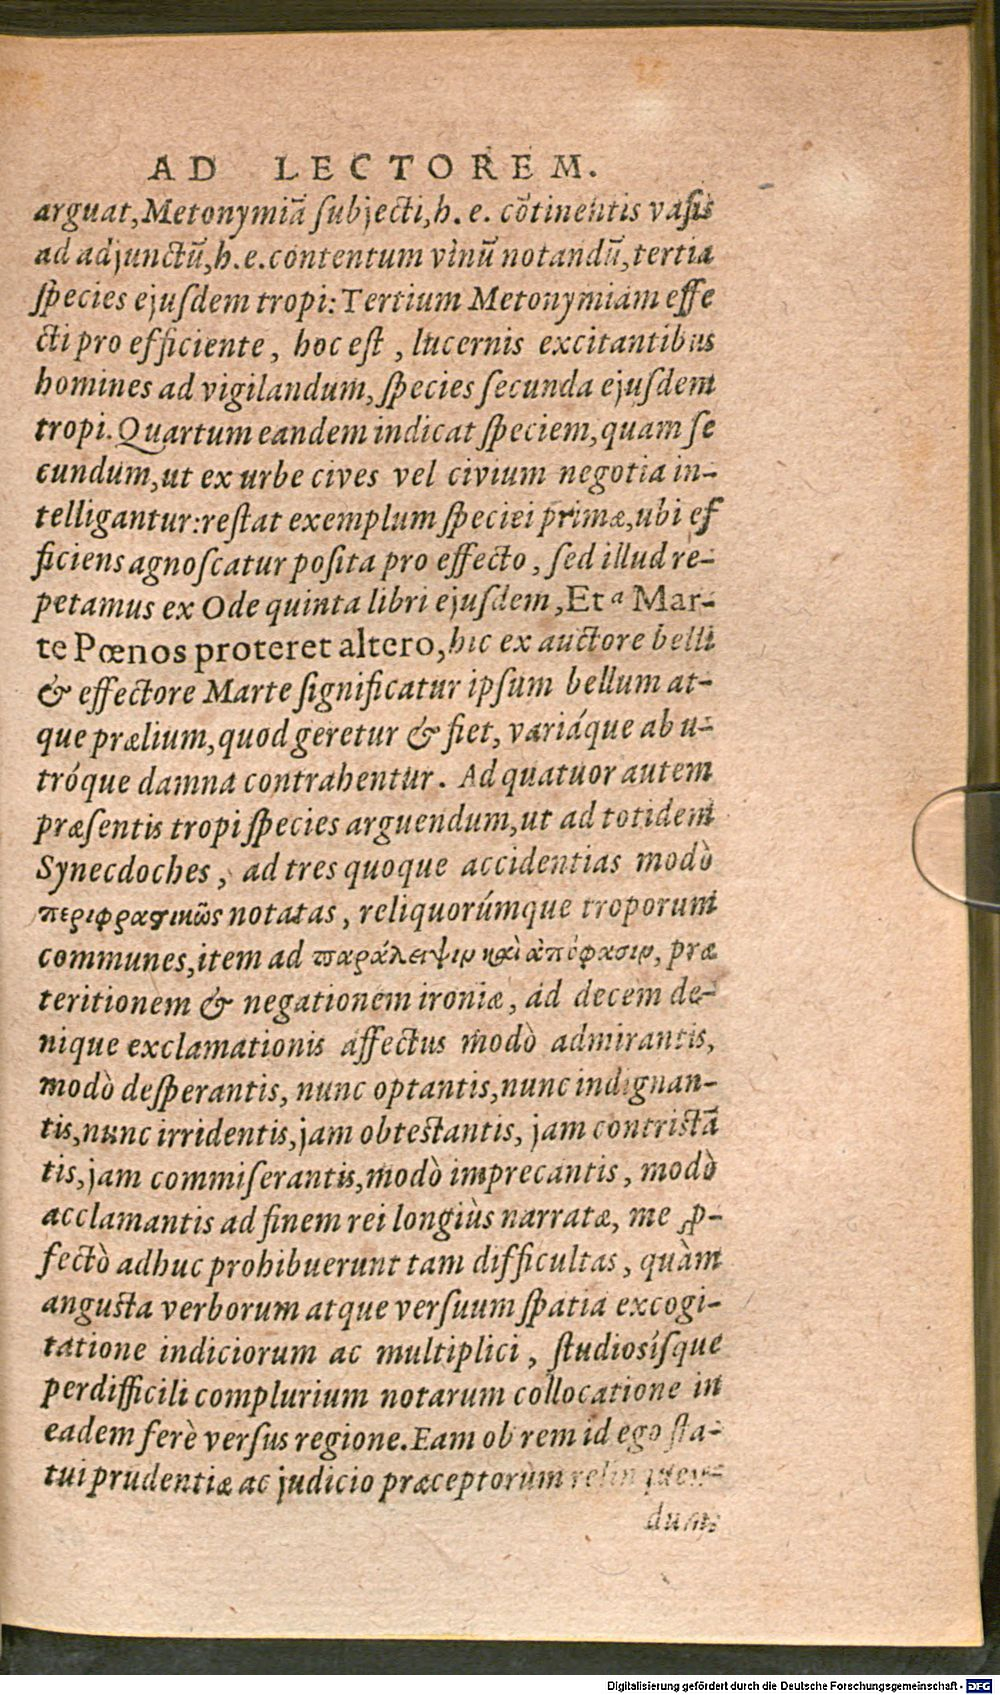 AD LECTOREM.
arguat, Metonymiã ſubjecti, h. e. cõtinentis vaſis
ad adjunctũ, h. e. contentum vinũ notandũ, tertia
ſpecies ejuſdem tropi: Tertium Metonymiam effe
cti pro efficiente, hoc eſt, lucernis excitantibus
homines ad vigilandum, ſpecies ſecunda ejuſdem
tropi. Quartum eandem indicat ſpeciem, quam ſe
cundum, ut ex urbe cives vel civium negotia in-
telligantur: reſtat exemplum ſpeciei primæ, ubi ef
ficiens agnoſcatur poſita pro effecto, ſed illud re-
petamus ex Ode quinta libri ejuſdem, Et a Mar-
te Pœnos proteret altero, hic ex auctore belli
& effectore Marte ſignificatur ipſum bellum at-
que prælium, quod geretur & fiet, variáque ab u-
tróque damna contrahentur. Ad quatuor autem
præſentis tropi ſpecies arguendum, ut ad totidem
Synecdoches, ad tres quoque accidentias modò
περιφραστικῶς notatas, reliquorúmque troporum
communes, item ad παράλειψιν καὶ ἀπόφασιν, præ
teritionem & negationem ironiæ, ad decem de-
nique exclamationis affectus modò admirantis,
modò deſperantis, nunc optantis, nunc indignan-
tis, nunc irridentis, jam obteſtantis, jam contriſtã
tis, jam commiſerantis, modò imprecantis, modò
acclamantis ad finem rei longiùs narratæ, me ꝓ-
fectò adhuc prohibuerunt tam difficultas, quàm
anguſta verborum atque verſuum ſpatia excogi-
tatione indiciorum ac multiplici, ſtudiosíſque
perdifficili complurium notarum collocatione in
eadem ferè verſus regione. Eam ob rem id ego ſta-
tui prudentiæ ac judicio præceptorum relinquen-
dum
Digitalisierung gefördert durch die Deutsche Forschungsgemeinschaft - DFG